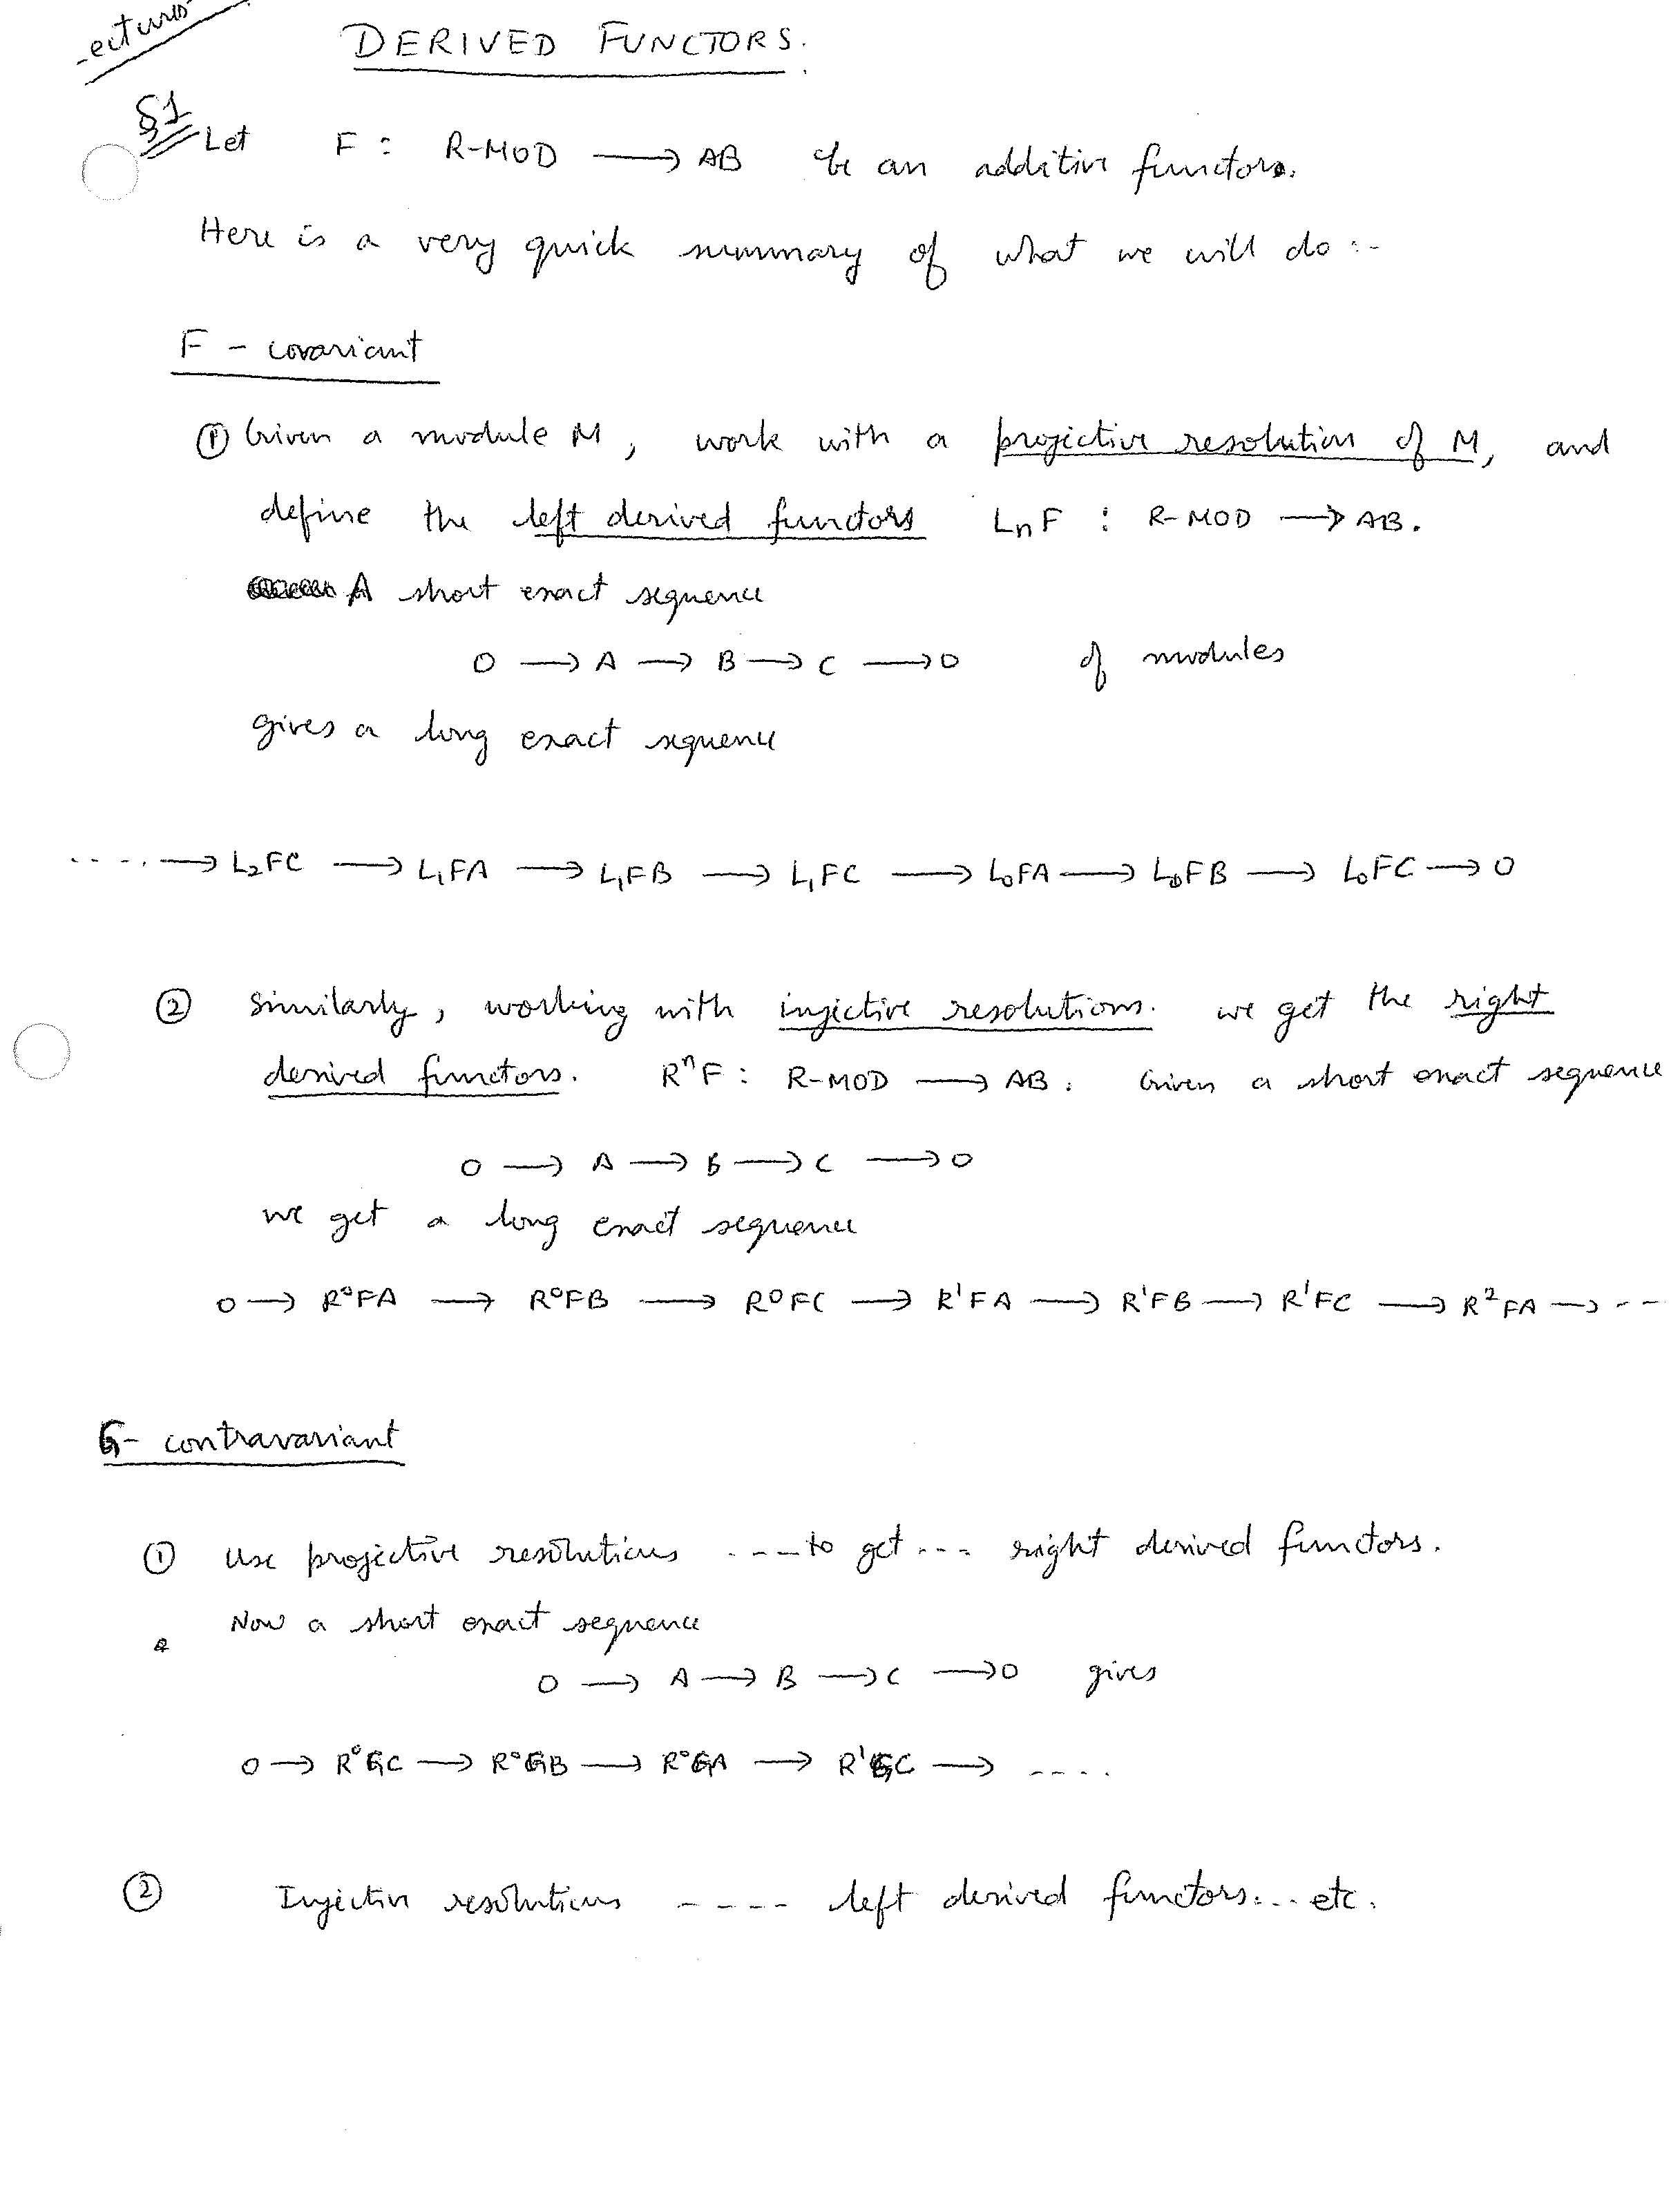 -ectures
DERIVED FUNCTORS.
§1
Let F : R-MOD ⟶ AB be an additive functor.
Here is a very quick summary of what we will do :-
F - covariant
① Given a module M, work with a projective resolution of M, and
define the left derived functors LₙF : R-MOD ⟶ AB.
A short exact sequence
0 ⟶ A ⟶ B ⟶ C ⟶ 0 of modules
gives a long exact sequence
.... ⟶ L₂FC ⟶ L₁FA ⟶ L₁FB ⟶ L₁FC ⟶ L₀FA ⟶ L₀FB ⟶ L₀FC ⟶ 0
② Similarly, working with injective resolutions. we get the right
derived functors. RⁿF : R-MOD ⟶ AB. Given a short exact sequence
0 ⟶ A ⟶ B ⟶ C ⟶ 0
we get a long exact sequence
0 ⟶ R⁰FA ⟶ R⁰FB ⟶ R⁰FC ⟶ R¹FA ⟶ R¹FB ⟶ R¹FC ⟶ R²FA ⟶ ---
G - contravariant
① Use projective resolutions ---- to get --- right derived functors.
Now a short exact sequence
0 ⟶ A ⟶ B ⟶ C ⟶ 0 gives
0 ⟶ R⁰GC ⟶ R⁰GB ⟶ R⁰GA ⟶ R¹GC ⟶ ....
② Injective resolutions ---- left derived functors... etc.